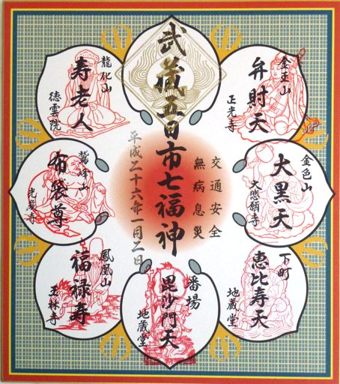 武蔵五日市七福神
交通安全
無病息災
平成二十六年一月二日
金玉山
弁財天
正光寺
金色山
大黒天
大悲願寺
下町
恵比寿天
地蔵堂
番場
毘沙門天
地蔵堂
鳳凰山
福禄寿
玉林寺
鷲峰山
布袋尊
光厳寺
龍化山
寿老人
徳雲院